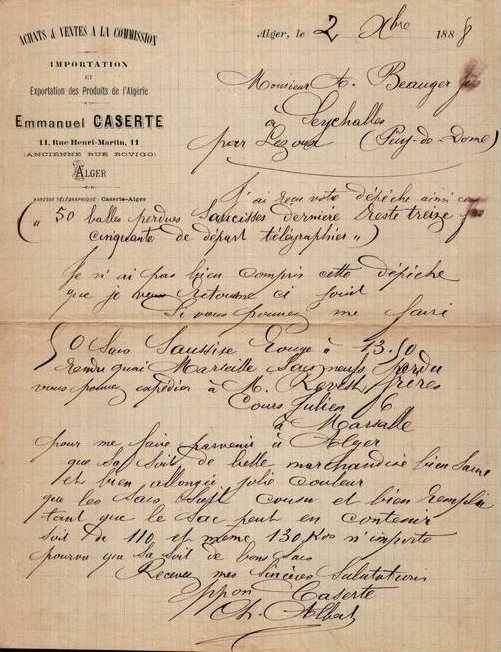 ACHATS & VENTES A LA COMMISSION
IMPORTATION
ET
Exportation des Produits de l'Algérie
Emmanuel CASERTE
11, Rue Henri-Martin, 11
(ANCIENNE RUE ROVIGO)
ALGER
ADRESSE TÉLÉGRAPHIQUE : Caserte-Alger
Alger, le 2 Xbre 1888
Monsieur A. Beauger fils
à Seychalles
par Lezoux (Puy-de-Dome)
J'ai reçu votre dépêche ainsi
(" 50 balles perdus Saucisses dernière reste treize
cinquante de départ télégraphier ")
Je n'ai pas bien compris cette dépêche
que je vous retourne ci joint
Si vous pouvez me faire
50 Sacs Saussise Rouge à 13.50
rendu quai Marseille Sacs neufs perdu
vous pouvez expédier à M. Revest frères
Cours Julien 6
à Marsalle
pour me faire parvenir à Alger
que sa soit de belle marchandise bien Saine
et bien allongée jolie couleur
que les Sacs soit cousu et bien remplie
tant que le Sac peut en contenir
soit de 110 et même 130 Kos n'importe
pourvu que sa soit de bons sacs
Recevez mes sincères Salutations
Caserte
Ch. Albat